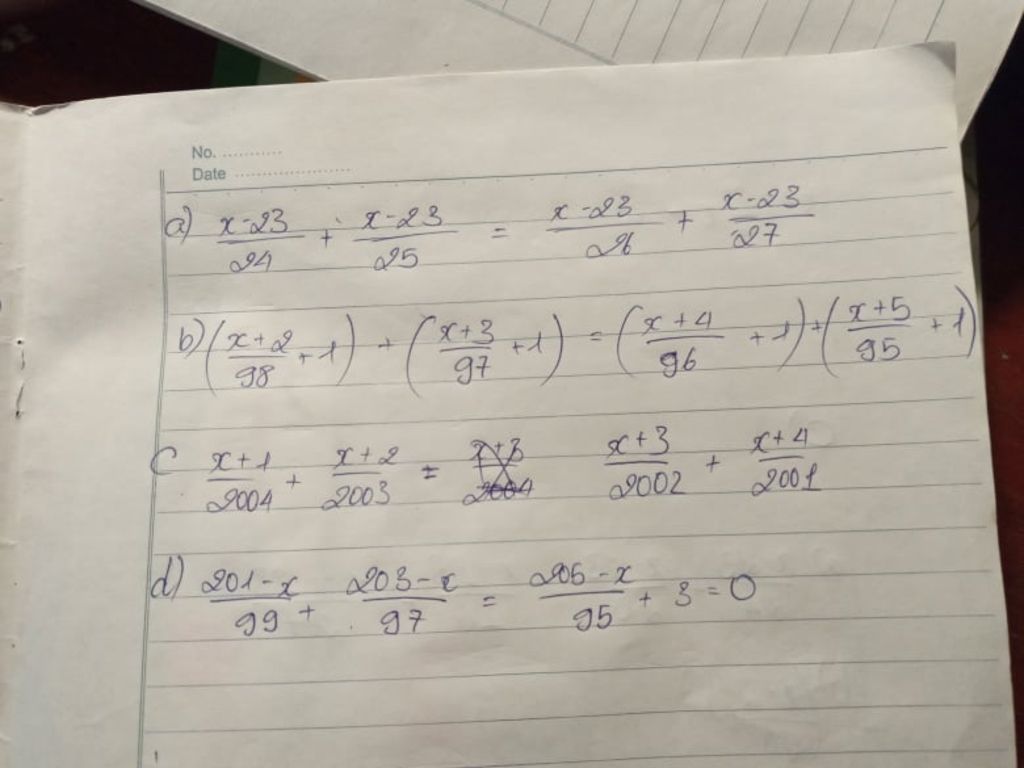 No. ...........
Date .....................
a) x-23/24 + x-23/25 = x-23/26 + x-23/27
b) (x+2/98 + 1) + (x+3/97 + 1) = (x+4/96 + 1) + (x+5/95 + 1)
c x+1/2004 + x+2/2003 = x+3/2004 x+3/2002 + x+4/2001
d) 201-x/99 + 203-x/97 = 205-x/95 + 3 = 0